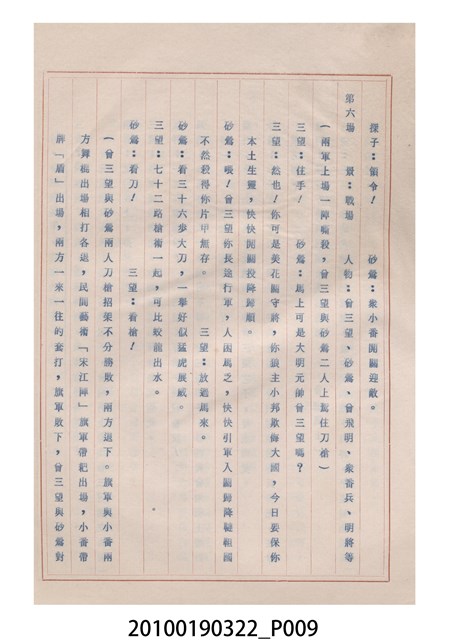 探子：領令！　　砂鶯：衆小番開關迎敵。
第六場　景：戰場　人物：曾三望、砂鶯、曾飛明、衆番兵、明將等
（兩軍上場一陣嘶殺，曾三望與砂鶯二人上駕住刀槍）
三望：住手！　砂鶯：馬上可是大明元帥曾三望嗎？
三望：然也！你可是美花關守將，你狼主小邦欺侮大國，今日要保你
本土生靈，快快開關投降歸順。
砂鶯：咳！曾三望你長途行軍，人困馬乏，快快引軍入關歸降疑祖國
不然殺得你片甲無存。　　三望：放過馬來。
砂鶯：看三十六步大刀，一舉好似猛虎展威。
三望：七十二路槍術一起，可比蛟龍出水。
砂鶯：看刀！　　　　三望：看槍！
（曾三望與砂鶯兩人刀槍招架不分勝敗，兩方退下。旗軍與小番兩
方舞棍出場相打各退，民間藝術「宋江陣」旗軍帶耙出場，小番帶
牌「盾」出場，兩方一來一往的套打，旗軍敗下，曾三望與砂鶯對
20100190322_P009